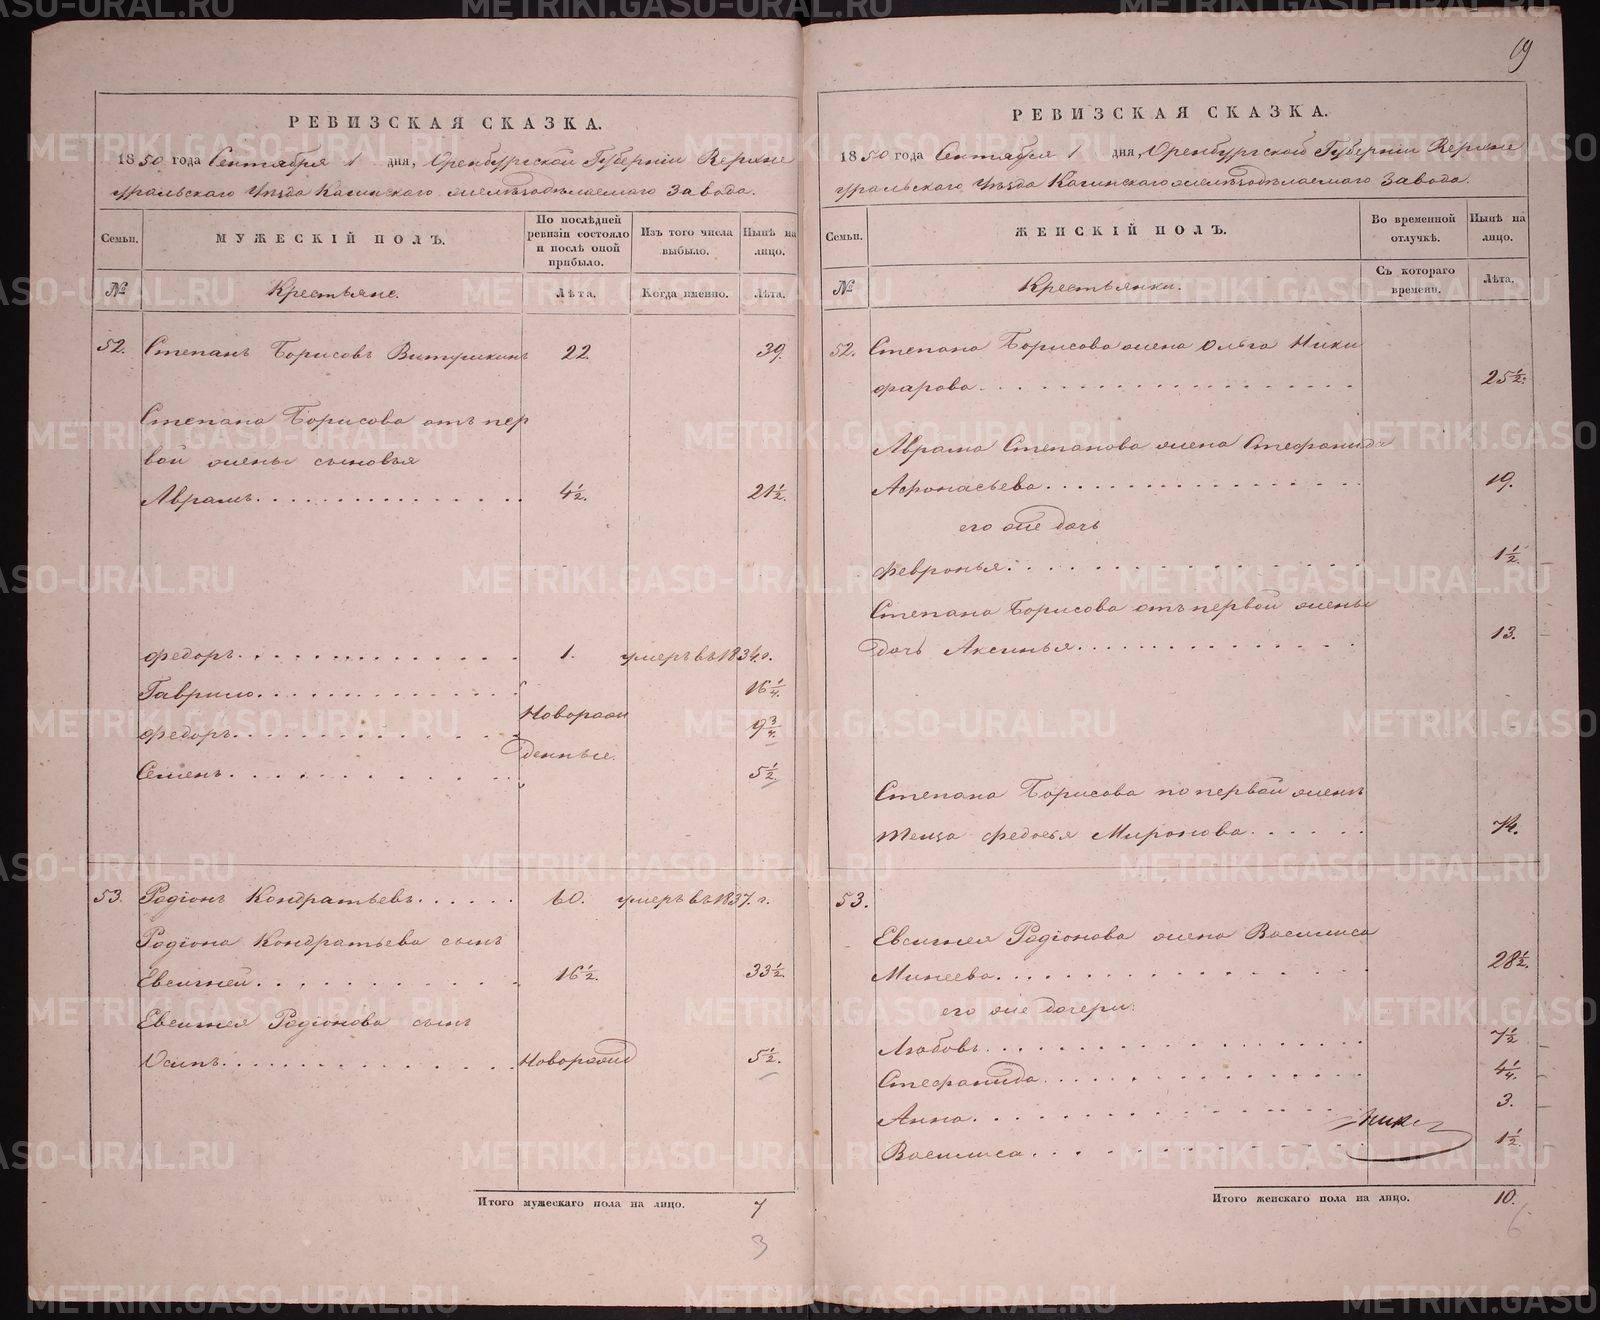 19
РЕВИЗСКАЯ СКАЗКА.
1850 года Сентября 1 дня, Оренбургской Губернiи Верхне
уральскаго Уѣзда Кагинскаго желѣзодѣлаемаго Завода.
Семьи.
МУЖЕСКIЙ ПОЛЪ.
По послѣдней ревизiи состояло и послѣ оной прибыло.
Изъ того числа выбыло.
Нынѣ на лицо.
№
Крестьяне.
Лѣта.
Когда именно.
Лѣта.
52. Степанъ Борисовъ Витушкинъ 22. 39.
Степана Борисова отъ пер
вой жены сыновья
Аврамъ. 4½. 21½.
Федоръ. 1. умеръ въ 1834. г.
Гаврило. 16¼.
Новорож
Федоръ. 9¾.
денные.
Семенъ. 5½.
53. Родiонъ Кондратьевъ. 60. умеръ въ 1837. г.
Родiона Кондратьева сынъ
Евсигней. 16½. 33½.
Евсигнея Родiонова сынъ
Осипъ. Новорожд 5½.
Итого мужескаго пола на лицо. 7
3
РЕВИЗСКАЯ СКАЗКА.
1850 года Сентября 1 дня, Оренбургской Губернiи Верхне
уральскаго Уѣзда Кагинскаго желѣзодѣлаемаго Завода.
Семьи.
ЖЕНСКIЙ ПОЛЪ.
Во временной отлучкѣ.
Нынѣ на лицо.
№
Крестьянки.
Съ котораго времени.
Лѣта.
52. Степана Борисова жена Ольга Ники
фарова. 25½.
Аврама Степанова жена Стефанида
Афонасьева. 19.
его же дочь
Февронья. 1½.
Степана Борисова отъ первой жены
дочь Аксинья. 13.
Степана Борисова по первой женѣ
теща Федосья Миронова. 74.
53.
Евсигнея Родiонова жена Василиса
Минеева. 28½.
его же дочери
Любовь. 7½
Стефанида. 4¼.
Анна. 3.
Василиса. 1½.
Итого женскаго пола на лицо. 10.
6
METRIKI.GASO-URAL.RU